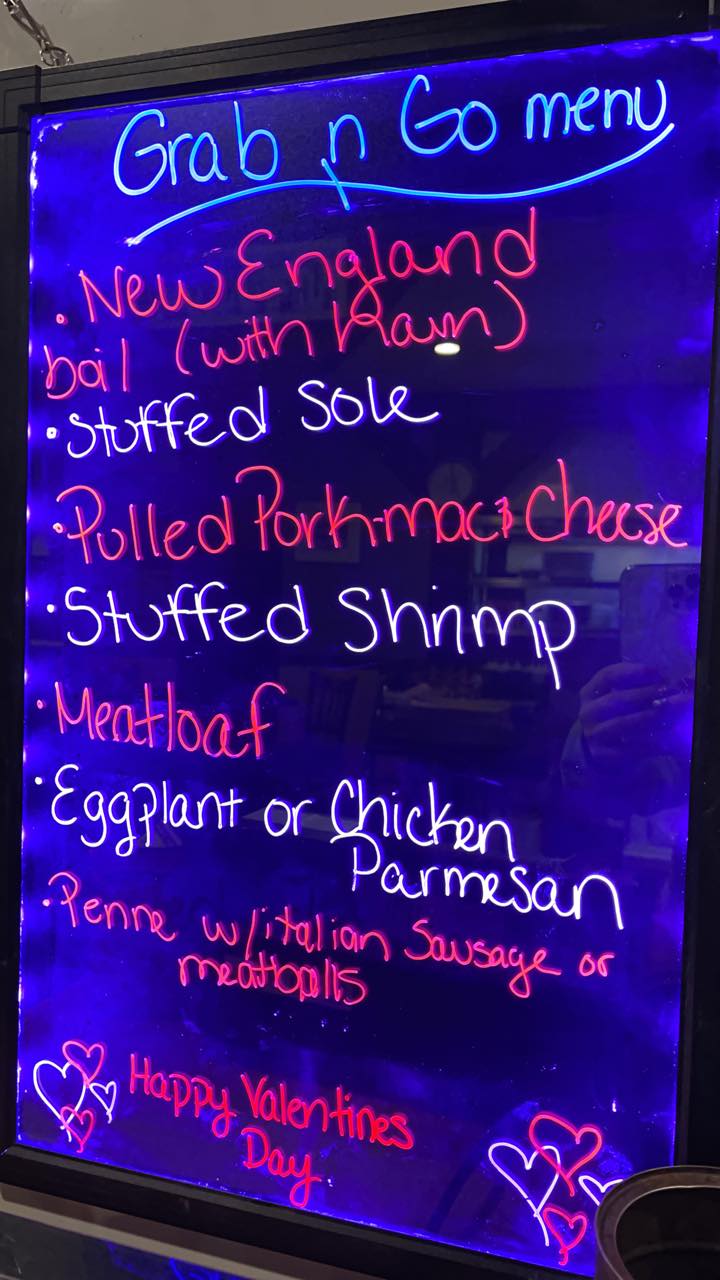 Grab n Go menu
• New England
boil (with Ham)
• Stuffed Sole
• Pulled Pork-mac & Cheese
• Stuffed Shrimp
• Meatloaf
• Eggplant or Chicken
Parmesan
• Penne w/italian Sausage or
meatballs
Happy Valentines
Day